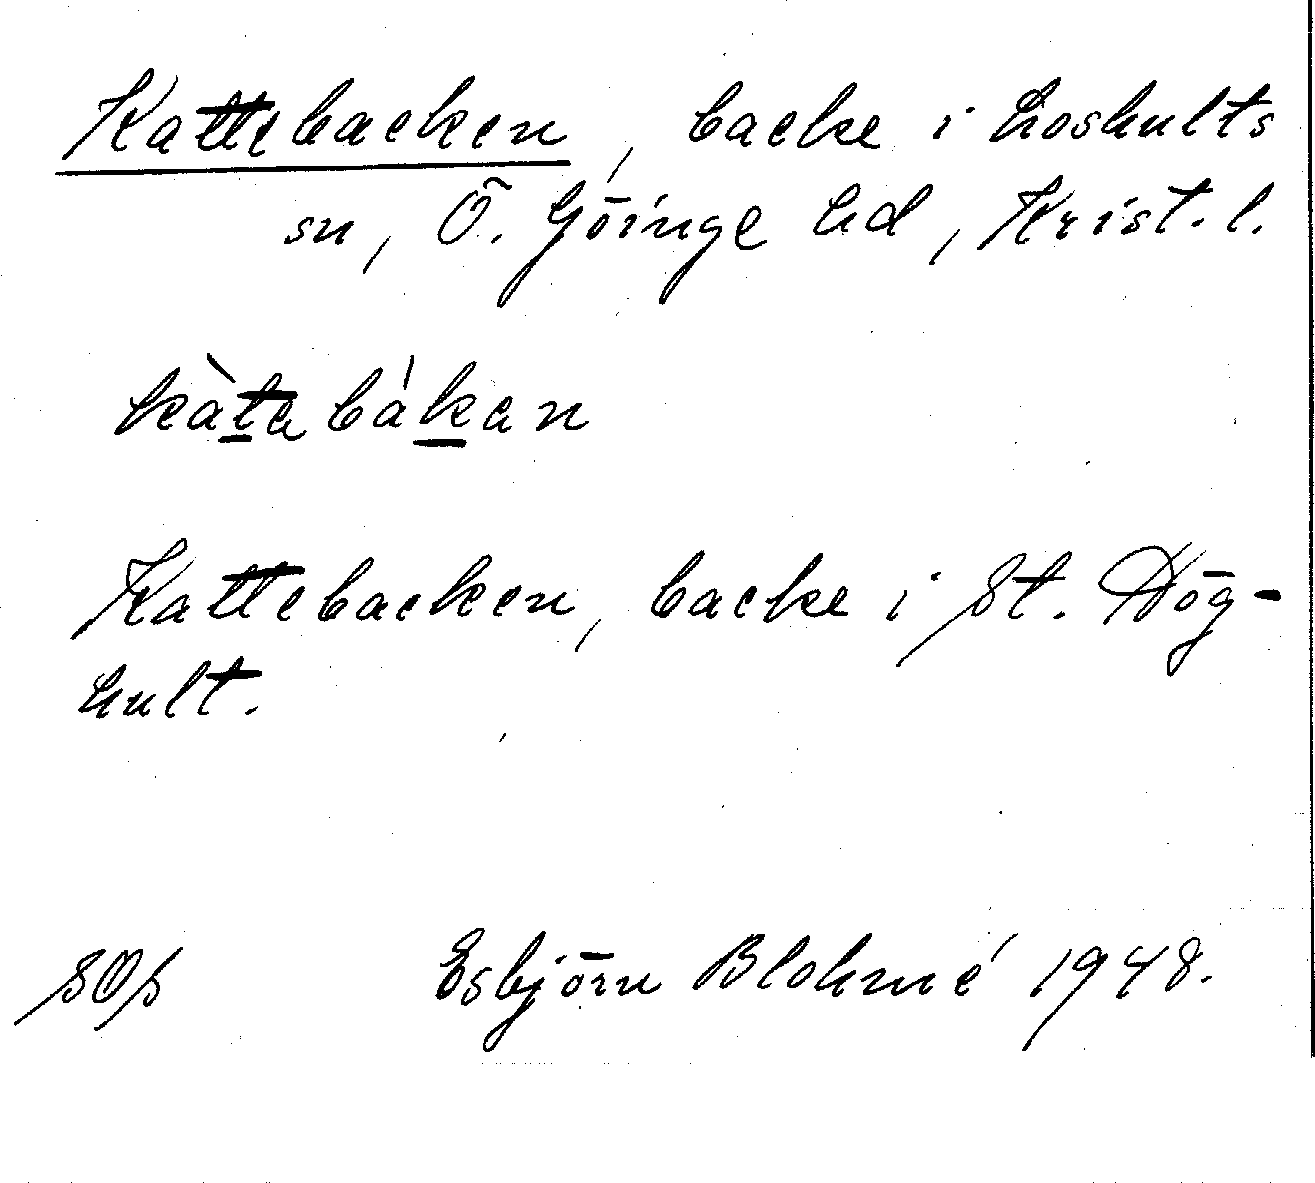 Kattebacken, backe i Loshults
sn, Ö. Göinge hd, Krist. l.
kàta bákan
Kattebacken, backe i St. Dög-
hult.
SOS Esbjörn Blohmé 1948.